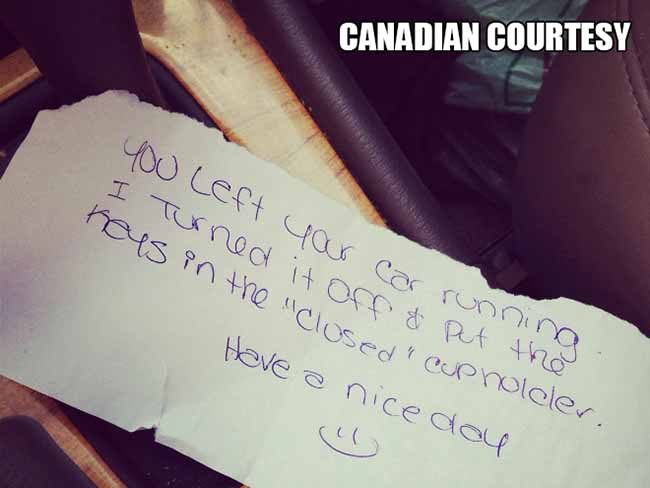 CANADIAN COURTESY
You left your car running.
I Turned it off & Put the
Keys in the "closed" cupholder.
Have a nice day